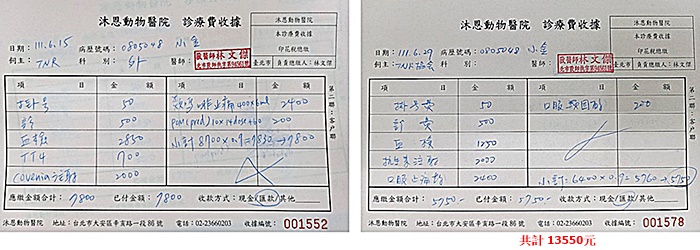 沐恩動物醫院 診療費收據
沐恩動物醫院
本診療費收據
印花稅總繳
臺北市 負責獸醫人：林文傑
日期：111.6.15 病歷號碼：0805048 小金
飼主：TNR 科別：外 醫師：
獸醫師林文傑
項 目 金 額 項 目 金 額
掛号 50 2400
診 500 200
血檢 2850 小計 8700×0.9=7830→7800
TT4 700
Covenia注射 2000
應繳金額合計：7800 已付金額：7800 收款方式：現金/匯款/其他
沐恩動物醫院 地址：台北市大安區辛亥路一段86號 電話：02-23660203 收據編號：001552
第二聯：客戶聯
沐恩動物醫院 診療費收據
沐恩動物醫院
本診療費收據
印花稅總繳
臺北市 負責獸醫人：林文傑
日期：111.6.29 病歷號碼：0805048 小金
飼主：TNR協會 科別： 醫師：
獸醫師林文傑
項 目 金 額 項 目 金 額
掛号費 50 200
診費 500
血檢 1250
抗生素注射 2000
2400 小計=6400×0.9=5760→5750
應繳金額合計：5750- 已付金額：5750- 收款方式：現金/匯款/其他
沐恩動物醫院 地址：台北市大安區辛亥路一段86號 電話：02-23660203 收據編號：001578
第二聯：客戶聯
共計 13550元